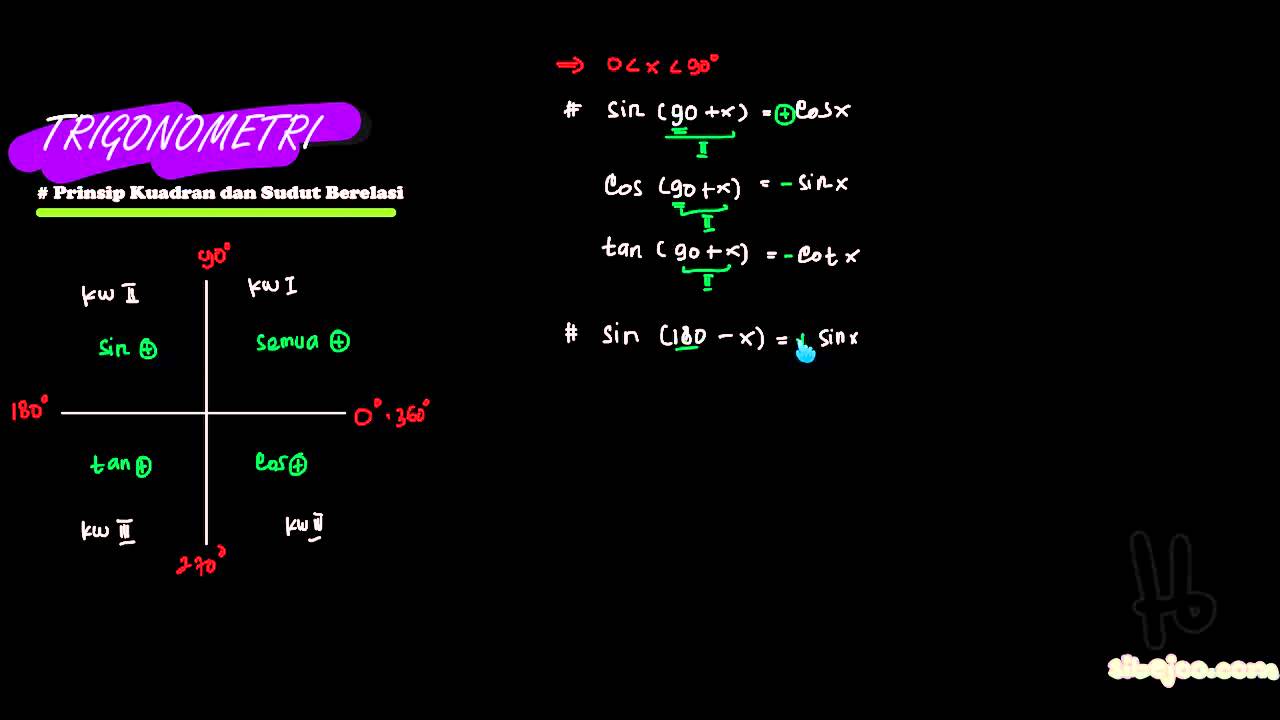 TRIGONOMETRI
# Prinsip Kuadran dan Sudut Berelasi
90°
kw II
kw I
sin ⊕
semua ⊕
180°
0° . 360°
tan ⊕
cos ⊕
kw III
270°
⇒ 0 < x < 90°
# sin (90 + x) = ⊕ cos x
II
cos (90 + x) = - sin x
II
tan (90 + x) = - cot x
II
# sin (180 - x) = sin x
sibejoo.com